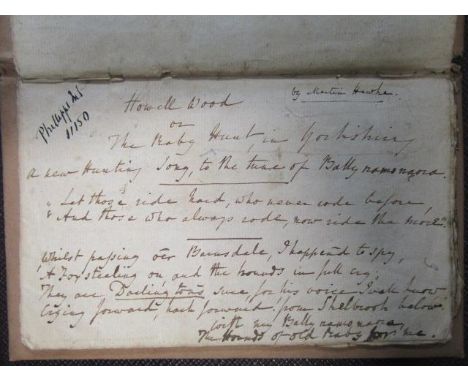 Phillipps MS
11150
by Martin Hawke.
Howell Wood
or
The Raby Hunt, in Yorkshire
a new Hunting Song, to the tune of Ballynamonaora.
"Let those ride hard, who never rode before,
"And those who always rode, now ride the more."
Whilst passing o'er Barnsdale, I happen'd to spy,
A Fox stealing on and the hounds in full cry;
They are Darlington's, sure for his voice I well know
Crying forward! hark forward! from Skelbrook below
with my Ballynamonaora
The Hounds of old Raby for me.